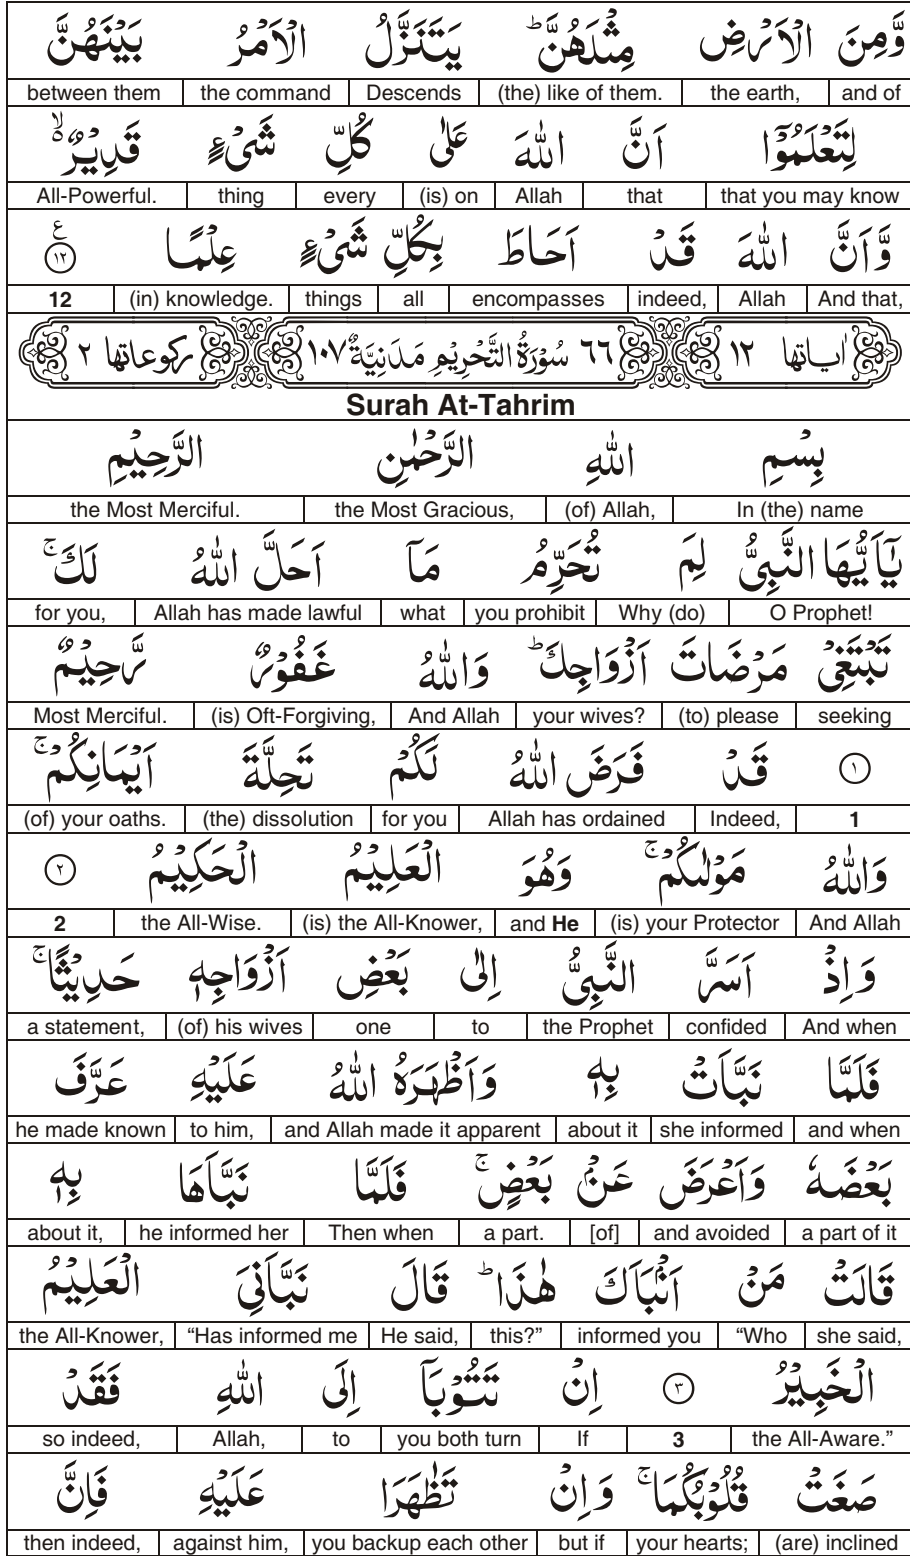 وَّمِنَ الۡاَرۡضِ مِثۡلَهُنَّ ؕ يَتَنَزَّلُ الۡاَمۡرُ بَيۡنَهُنَّ
and of | the earth, | (the) like of them. | Descends | the command | between them
لِتَعۡلَمُوۡۤا اَنَّ اللّٰهَ عَلٰى كُلِّ شَىۡءٍ قَدِيۡرٌ ۙ
that you may know | that | Allah | (is) on | every | thing | All-Powerful.
وَّاَنَّ اللّٰهَ قَدۡ اَحَاطَ بِكُلِّ شَىۡءٍ عِلۡمًا ﴿۱۲﴾ ع
And that, | Allah | indeed, | encompasses | all | things | (in) knowledge. | 12
اٰياتها ١٢ ٦٦ سُوۡرَةُ التَّحۡرِيۡمِ مَدَنِيَّةٌ ١٠٧ ركوعاتها ٢
Surah At-Tahrim
بِسۡمِ اللّٰهِ الرَّحۡمٰنِ الرَّحِيۡمِ
In (the) name | (of) Allah, | the Most Gracious, | the Most Merciful.
يٰۤاَيُّهَا النَّبِىُّ لِمَ تُحَرِّمُ مَاۤ اَحَلَّ اللّٰهُ لَكَ ۚ
O Prophet! | Why (do) | you prohibit | what | Allah has made lawful | for you,
تَبۡتَغِىۡ مَرۡضَاتَ اَزۡوَاجِكَ ؕ وَاللّٰهُ غَفُوۡرٌ رَّحِيۡمٌ
seeking | (to) please | your wives? | And Allah | (is) Oft-Forgiving, | Most Merciful.
﴿۱﴾ قَدۡ فَرَضَ اللّٰهُ لَكُمۡ تَحِلَّةَ اَيۡمَانِكُمۡ ۚ
1 | Indeed, | Allah has ordained | for you | (the) dissolution | (of) your oaths.
وَاللّٰهُ مَوۡلٰٮكُمۡ ۚ وَهُوَ الۡعَلِيۡمُ الۡحَكِيۡمُ ﴿۲﴾
And Allah | (is) your Protector | and He | (is) the All-Knower, | the All-Wise. | 2
وَاِذۡ اَسَرَّ النَّبِىُّ اِلٰى بَعۡضِ اَزۡوَاجِهٖ حَدِيۡثًا ۚ
And when | confided | the Prophet | to | one | (of) his wives | a statement,
فَلَمَّا نَبَّاَتۡ بِهٖ وَاَظۡهَرَهُ اللّٰهُ عَلَيۡهِ عَرَّفَ
and when | she informed | about it | and Allah made it apparent | to him, | he made known
بَعۡضَهٗ وَاَعۡرَضَ عَنۡۢ بَعۡضٍ ۚ فَلَمَّا نَبَّاَهَا بِهٖ
a part of it | and avoided | [of] | a part. | Then when | he informed her | about it,
قَالَتۡ مَنۡ اَنۡۢبَاَكَ هٰذَا ؕ قَالَ نَبَّاَنِىَ الۡعَلِيۡمُ
she said, | “Who | informed you | this?” | He said, | “Has informed me | the All-Knower,
الۡخَبِيۡرُ ﴿۳﴾ اِنۡ تَتُوۡبَاۤ اِلَى اللّٰهِ فَقَدۡ
the All-Aware.” | 3 | If | you both turn | to | Allah, | so indeed,
صَغَتۡ قُلُوۡبُكُمَا ۚ وَاِنۡ تَظٰهَرَا عَلَيۡهِ فَاِنَّ
(are) inclined | your hearts; | but if | you backup each other | against him, | then indeed,